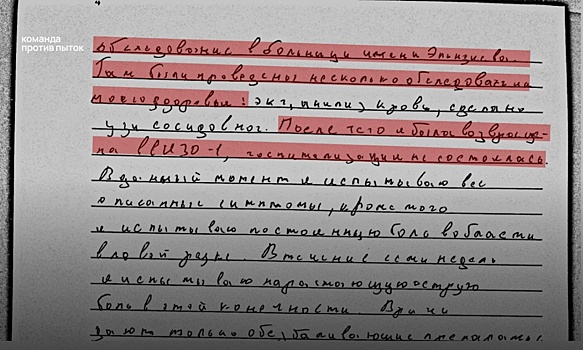 команда
против пыток
обследование в больницу имени Эльпиева.
Там были проведены несколько обследований
моего здоровья: экг, анализ крови, сделано
узи сосудов ног. После чего я была возвраще-
на в СИЗО-1, госпитализация не состоялась.
В данный момент я испытываю все
описанные симптомы, кроме того
я испытываю постоянную боль в области
в левой руке. В течение семи недель
я испытываю нарастающую острую
боль в этой конечности. Врачи
дают только обезбаливающие препараты.